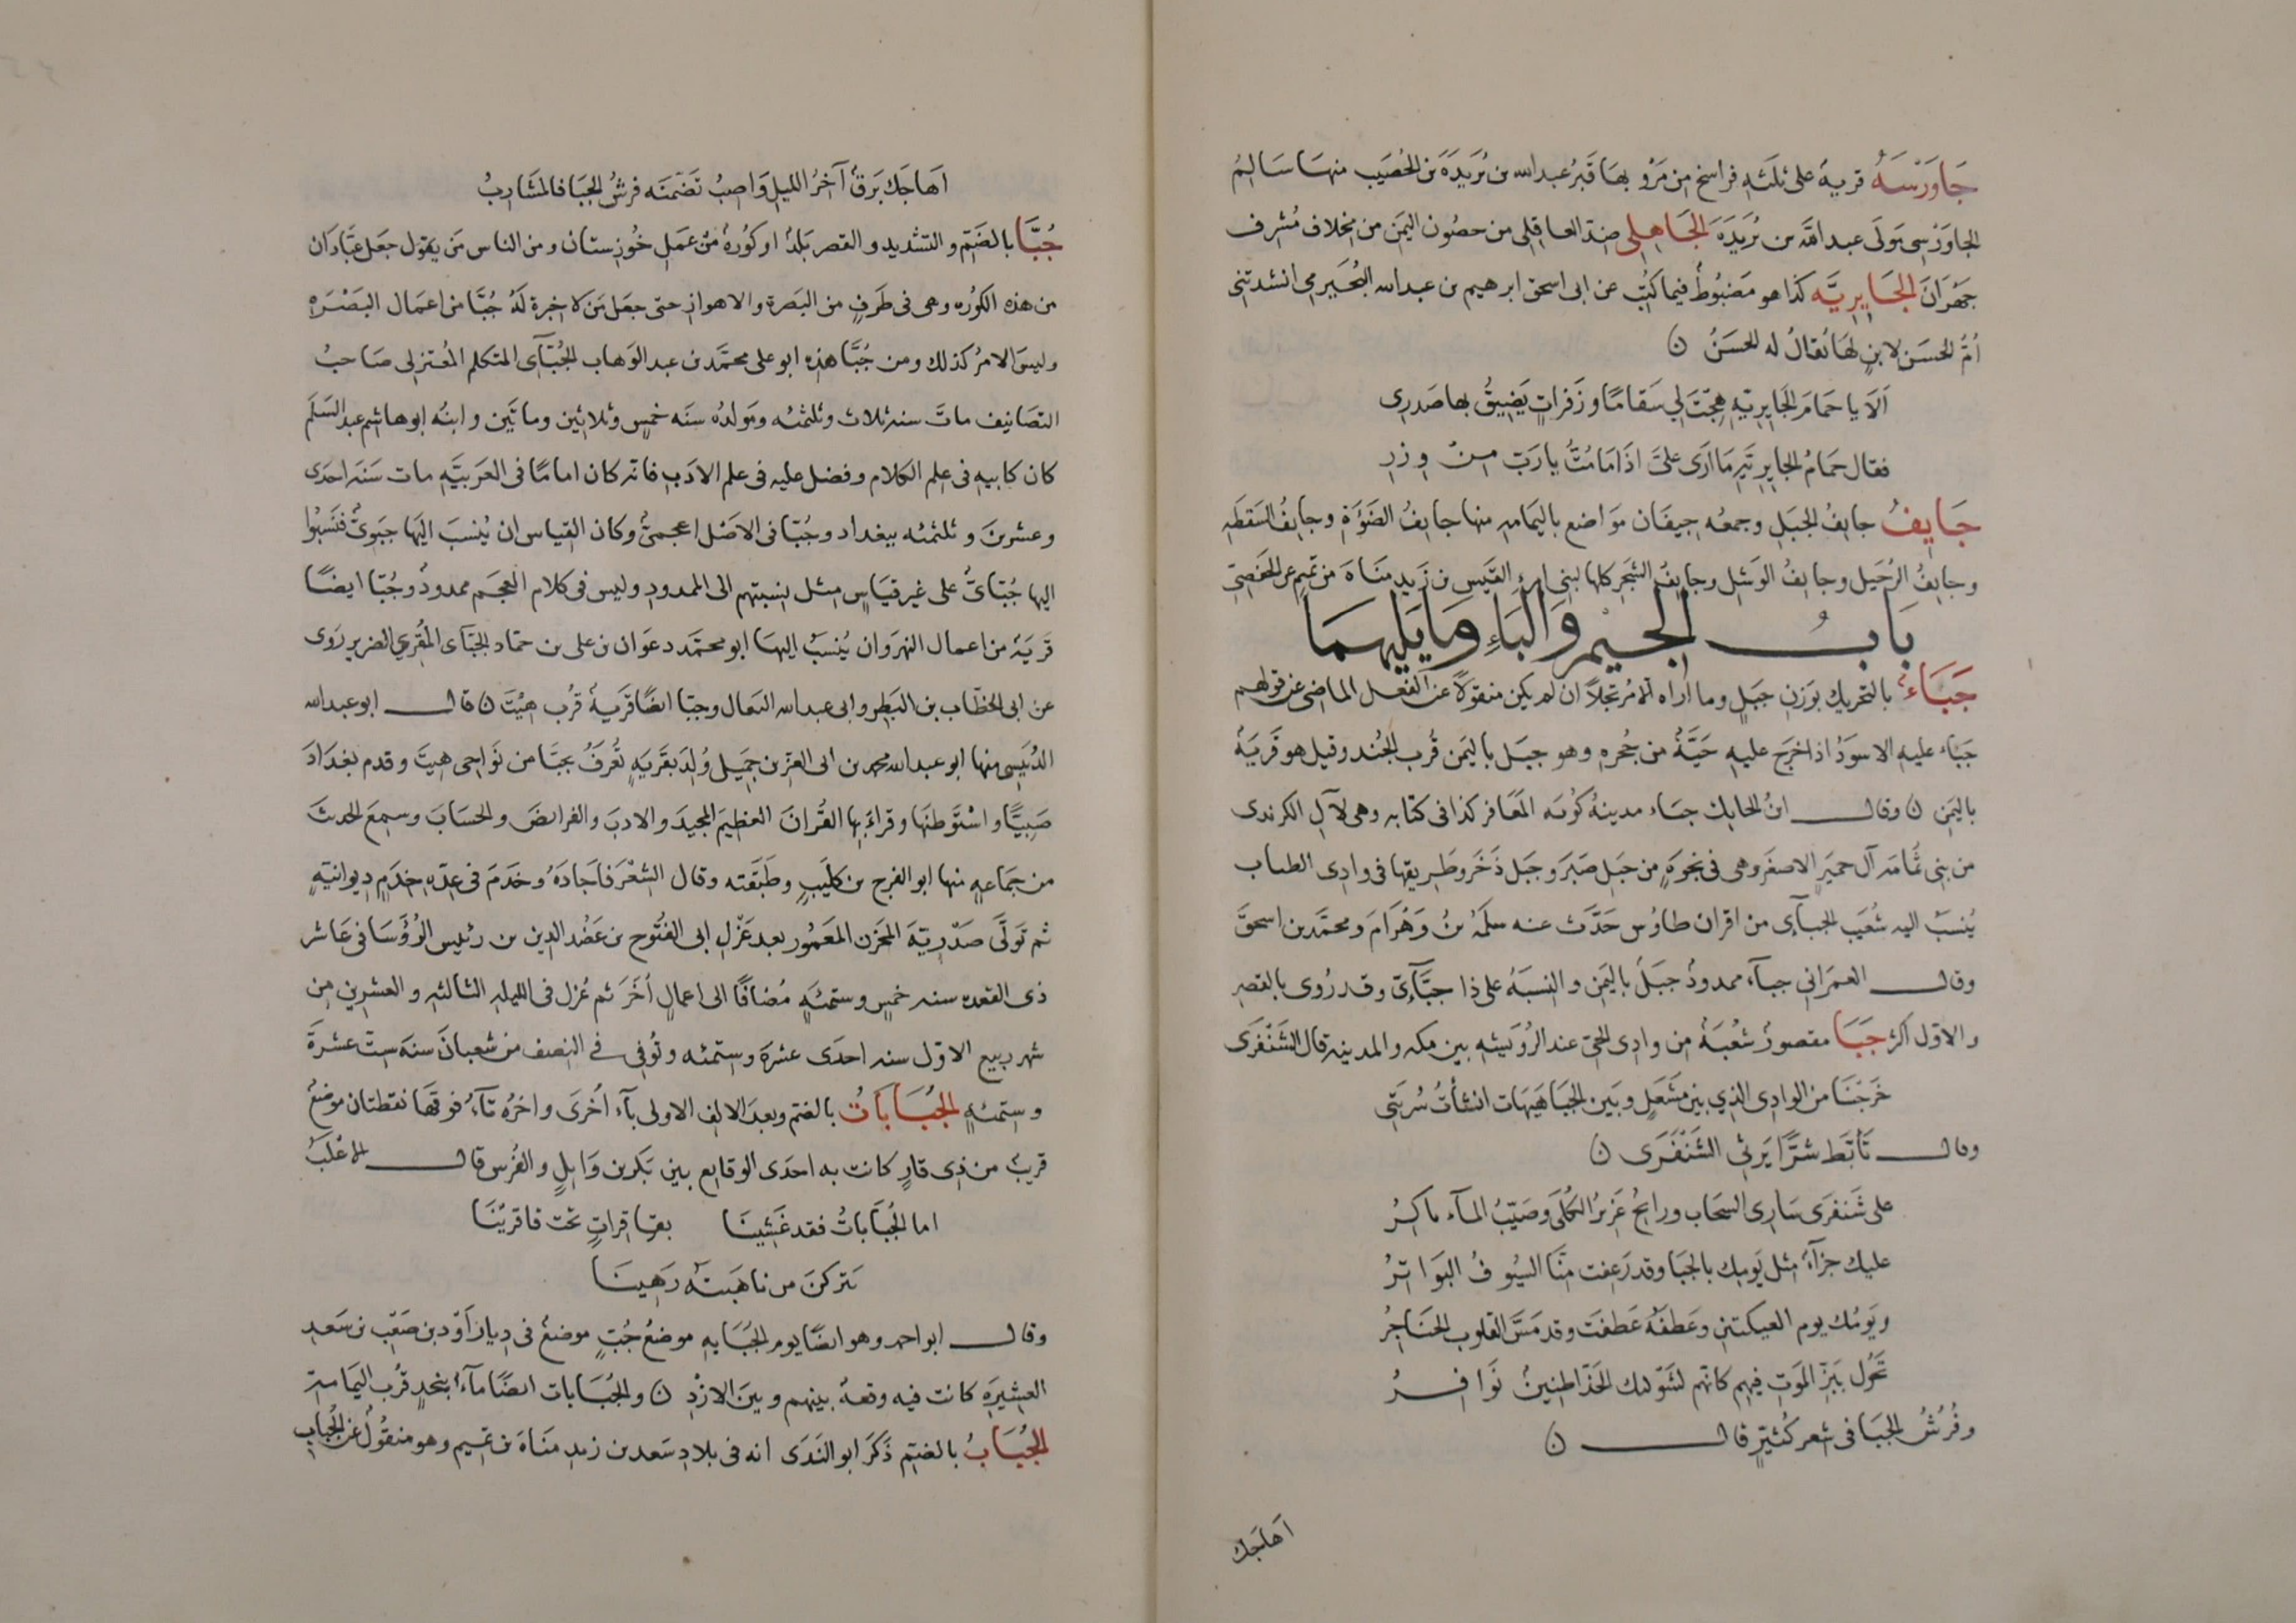 جَاوَرْسَهُ قرية على ثلثه فراسخ من مَرْو بها قَبرُ عبد الله بن بُرَيدَةَ بن الحُصَيب منها سَالِمُ
الجاوَرْسى مَولَى عبد الله بن بُرَيدَةَ الجَاهِلِى ضِدّ العاقِلى من حصُون اليَمَن من مِخلاف مُشرِف
جَهْرَانَ الجَايِرِيَّه كذا هو مَضبُوطٌ فيما كتبَ عن ابى اسحق ابرهيم بن عبد الله النُّجَيرمى انشدتنى
أمُّ الحسَن لابنٍ لهَا يُقالُ له الحسَنُ ن
اَلا يا حَمَامَ الجَايِرِيّهِ هِجْتَ لى سَقامًا وزَفراتٍ يَضِيقُ بها صَدرِى
فقال حَمَامُ الجايِرِيَّهِ مَا ارَى علىَّ اذَا مَا مُتَّ يا رَبّ مِنْ وِزرِ
جَايِفُ جايفُ الجبَلِ وجمعُه جِيفَان مَوَاضع باليَمَامه منها جايفُ الضَوْءَةِ وجايفُ السَقطَه
وجايفُ الرُحَيل وجايفُ الوَشَلِ وجايفُ الشجر كلها لبنى امرئ القَيس بن زَيد مَنَاة من تميم عن الحَفصىّ
بَابُ الجيْم وَالبَاءِ وَمَا يَليهِمَا
جَبَاءُ بالتحريك بوَزنِ جَبَلٍ وما اراه الا مُرتَجلاً ان لم يكن منقولاً عن الفعل الماضى من قولهم
جَبَاء عليه الاسوَدُ اذا خرَج عليه حَيَّةٌ من جُحرِه وهو جبَل باليَمن قُرب الجُند وقيل هو قَريَةٌ
باليَمن ن وقال ابنُ الحايك جبَاء مدينهُ كوُره المَعَافر كذا فى كتابه وهى لآلِ الكرندى
من بنى ثُمامه آل حميَر الاصغَر وهى فى نجوَةٍ من جبَل صَبَر وجَبَل ذَخَر وطَرِيقها فى وادى الضباب
يُنسَبُ اليه شُعَيب الجبآىّ من اقران طاوُس حَدَّث عنه سلَمَهُ بنُ وَهْرَامَ ومحمَّد بن اسحقَ
وقال العمرَانى جبآء ممدودٌ جبَلٌ باليَمن والنِسبَهُ على ذا جَبآَئىّ وقد رُوى بالقصر
والاوّل اكثر جَبَا مقصورٌ شُعْبَهٌ من وادى الجىّ عند الرُوَيثه بين مكه والمدينه قال الشنفرَى
خَرَجْنَا من الوادِى الذى بين مَشعَلٍ وبَين الجَبَا هَيهَات انشأتُ سُربَتى
وقال تَأبَّط شرًّا يَرثى الشَنْفَرَى ن
على شَنفرَى سَارِى السحَاب ورايحٌ غَزيرُ الكُلَى وصَيّبُ المآء باكرُ
عليك جزآءٌ مثل يَومِك بالجَبَا وقد رَعِفت مِنّا السيُوفُ البوَاترُ
ويَومُك يوم العيكتين وعَطفَةٌ عَطَفتَ وقد مَسَّ القلوب الحنَاجِرُ
تَحُول ببَزّ المَوتِ فيهم كانّهم لشَوكتك الحَذَّا ضئينٌ نَوَافِرُ
وفُرُشُ الجَبَا فى شعر كُثيّرٍ قال ن
اَهَاجَك
اَهَاجَك بَرقٌ آخرَ الليلِ وَاصِبُ تَضَمّنَه فرشُ الجَبَا فالمَشَارِبُ
جُبَّا بالضَمّ والتشديد والقصر بَلدٌ او كُورةٌ من عَمَل خُوزستان ومن الناس مَن يقول جعَل عبَّادَان
من هذه الكوُره وهى فى طَرفٍ من البَصرة والاهواز حتى جعَل مَن لا خِبرة لَهُ جُبَّا من اعمَال البَصْرَه
وليسَ الامرُ كذلك ومن جُبَّا هذِه ابو على محمَّد بن عبد الوَهاب الجُبّآى المتكلم المُعتزلى صَاحبُ
التصَانيف ماتَ سنه ثلاث وثلثمئه ومَولدُه سنَه خمسٍ وثلاثين وماتَين وابنُه ابو هاشم عبد السَلَم
كان كابيهِ فى علم الكلام وفضل عليه فى علم الادَب فانه كان امامًا فى العَربيَّه مات سَنَه احدى
وعشرينَ وثلثمئه ببغداد وجُبّا فى الاصَل اعجمىٌّ وكان القياس ان يُنسبَ اليَها جبوىٌّ فنَسَبُوا
اليها جُبّائىٌّ على غير قيَاسٍ مثل نسبتهم الى الممدود وليس فى كلام العجَم ممدودٌ وجُبّا ايضًا
قَريَهٌ من اعمال النهرَوان يُنسَبُ اليهَا ابو محمَّد دعوَان بن على بن حمّاد الجبّآى المُقرى الضرير رَوَى
عن ابى الخطّاب بن البَطِر وابى عبد الله النعال وجبّا ايضًا قَريةٌ قُرب هِيْتَ ن قال ابو عبد الله
الدُبَيثى منها ابو عبد الله محمد بن ابى العِزّ بن جَميل وُلِدَ بقَريَهٍ تُعرَفُ بجبّا من نَوَاحى هيتَ وقدم بغدَادَ
صَبيًّا واسْتَوطنَهَا وقراءَ بها القُرانَ العظيَم المجيدَ والادبَ والفرايضَ والحسَابَ وسمِعَ الحديثَ
من جَمَاعهٍ منها ابو الفرج بن كُلَيبٍ وطَبَقَته وقال الشعْرَ فاجَادَهُ وخَدَمَ فى عِدّهِ خِدَمٍ ديوانيّهٍ
ثم تَولَّى صَدْرِيّهَ المخزن المَعمُور بعد عَزلِ ابى الفتُوح بن عَضُد الدين بن رئيس الرُؤسَا فى عَاشر
ذى القعده سنه خمسٍ وستمئهٍ مُضافًا الى اعمالٍ أخَرَ ثم عُزل فى الليله الثالثه والعشرين من
شهر ربيع الاوّل سنه احدَى عشرة وستمئه وتُوُفى فى النصف من شعبانَ سنَه ستّ عشرَةَ
وستمئهٍ الجُبَابَاتُ بالضم وبعدَ الالف الاولى بآء أخرَى واخرُه تآءٌ فوقهَا نقطتان موضعٌ
قريبٌ من ذِى قارٍ كانت به احدَى الوقايع بين بَكر بن وَايلٍ والفُرس قال الاغْلَبُ
اما الجُبَاباتُ فقد غَشِينَا بفاقراتٍ تحت فاقرِيْنَا
يَترُكنَ من ناهَبنَهُ رَهِينَا
وقال ابو احمد وهو ايضًا يوم الجُبَابه موضعٌ جُبّ موضعٌ فى ديار اَوْد بن صَعْب بن سَعد
العشيرَه كانت فيه وقعهٌ بينهم وبين الازْدِ ن والجُبَابات ايضًا مآءٌ بنجدٍ قُرب اليَمامه
الجُبَابُ بالضم ذَكَرَ ابو النَدَى انه فى بلاد سَعد بن زيد مَنَاة بن تميم وهو منقُولٌ عن الجُبابِ